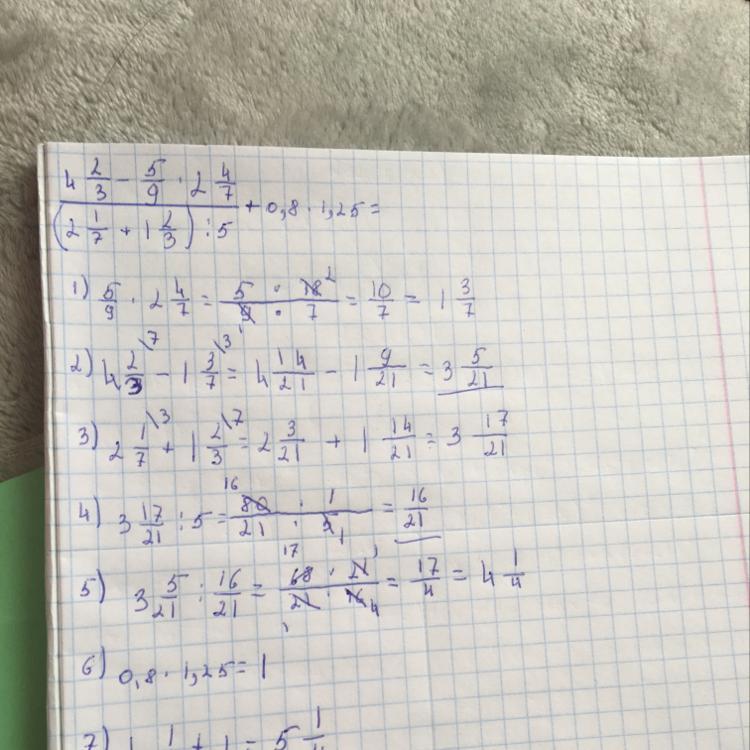 4 2/3 − 5/9 · 2 4/7
(2 1/7 + 1 2/3) : 5 + 0,8 · 1,25 =
1) 5/9 · 2 4/7 = 5 · 18 2 / 9 1 · 7 = 10/7 = 1 3/7
2) 4 2/3 \7 − 1 3/7 \3 = 4 14/21 − 1 9/21 = 3 5/21
3) 2 1/7 \3 + 1 2/3 \7 = 2 3/21 + 1 14/21 = 3 17/21
4) 3 17/21 : 5 = 16 80 · 1 / 21 · 5 1 = 16/21
5) 3 5/21 : 16/21 = 17 68 · 21 1 / 21 1 · 16 4 = 17/4 = 4 1/4
6) 0,8 · 1,25 = 1
7) 4 1/4 + 1 = 5 1/4